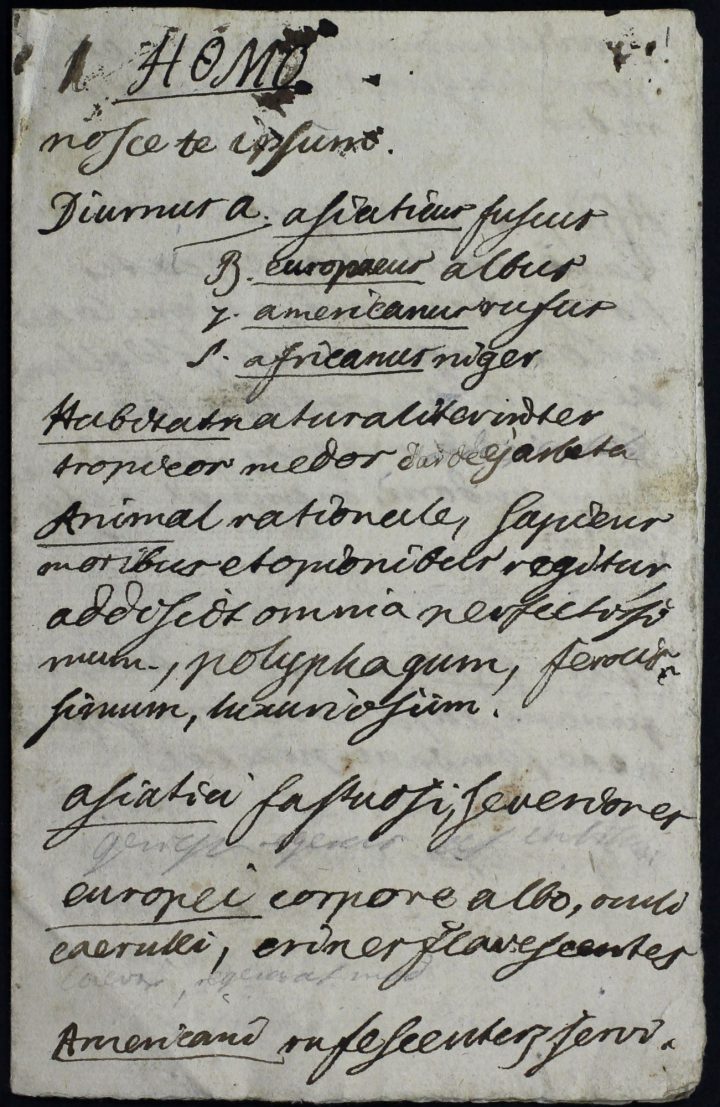 1 HOMO 1
nosce te ipsum.
Diurnus α. asiaticus fuscus
β. europaeus albus
γ. americanus rufus
δ. africanus niger
Habitat naturaliter inter
tropicos medos
Animal rationale, sapiens
moribus et opionibus regitur
addiscit omnia perfectissi
mum, polyphagum, ferocis
simum, luxuriosium.
asiatici fastuosi, severiores
europei corpore albo, oculi
caerulli, crines flavescentes
Americani rufescentes servi